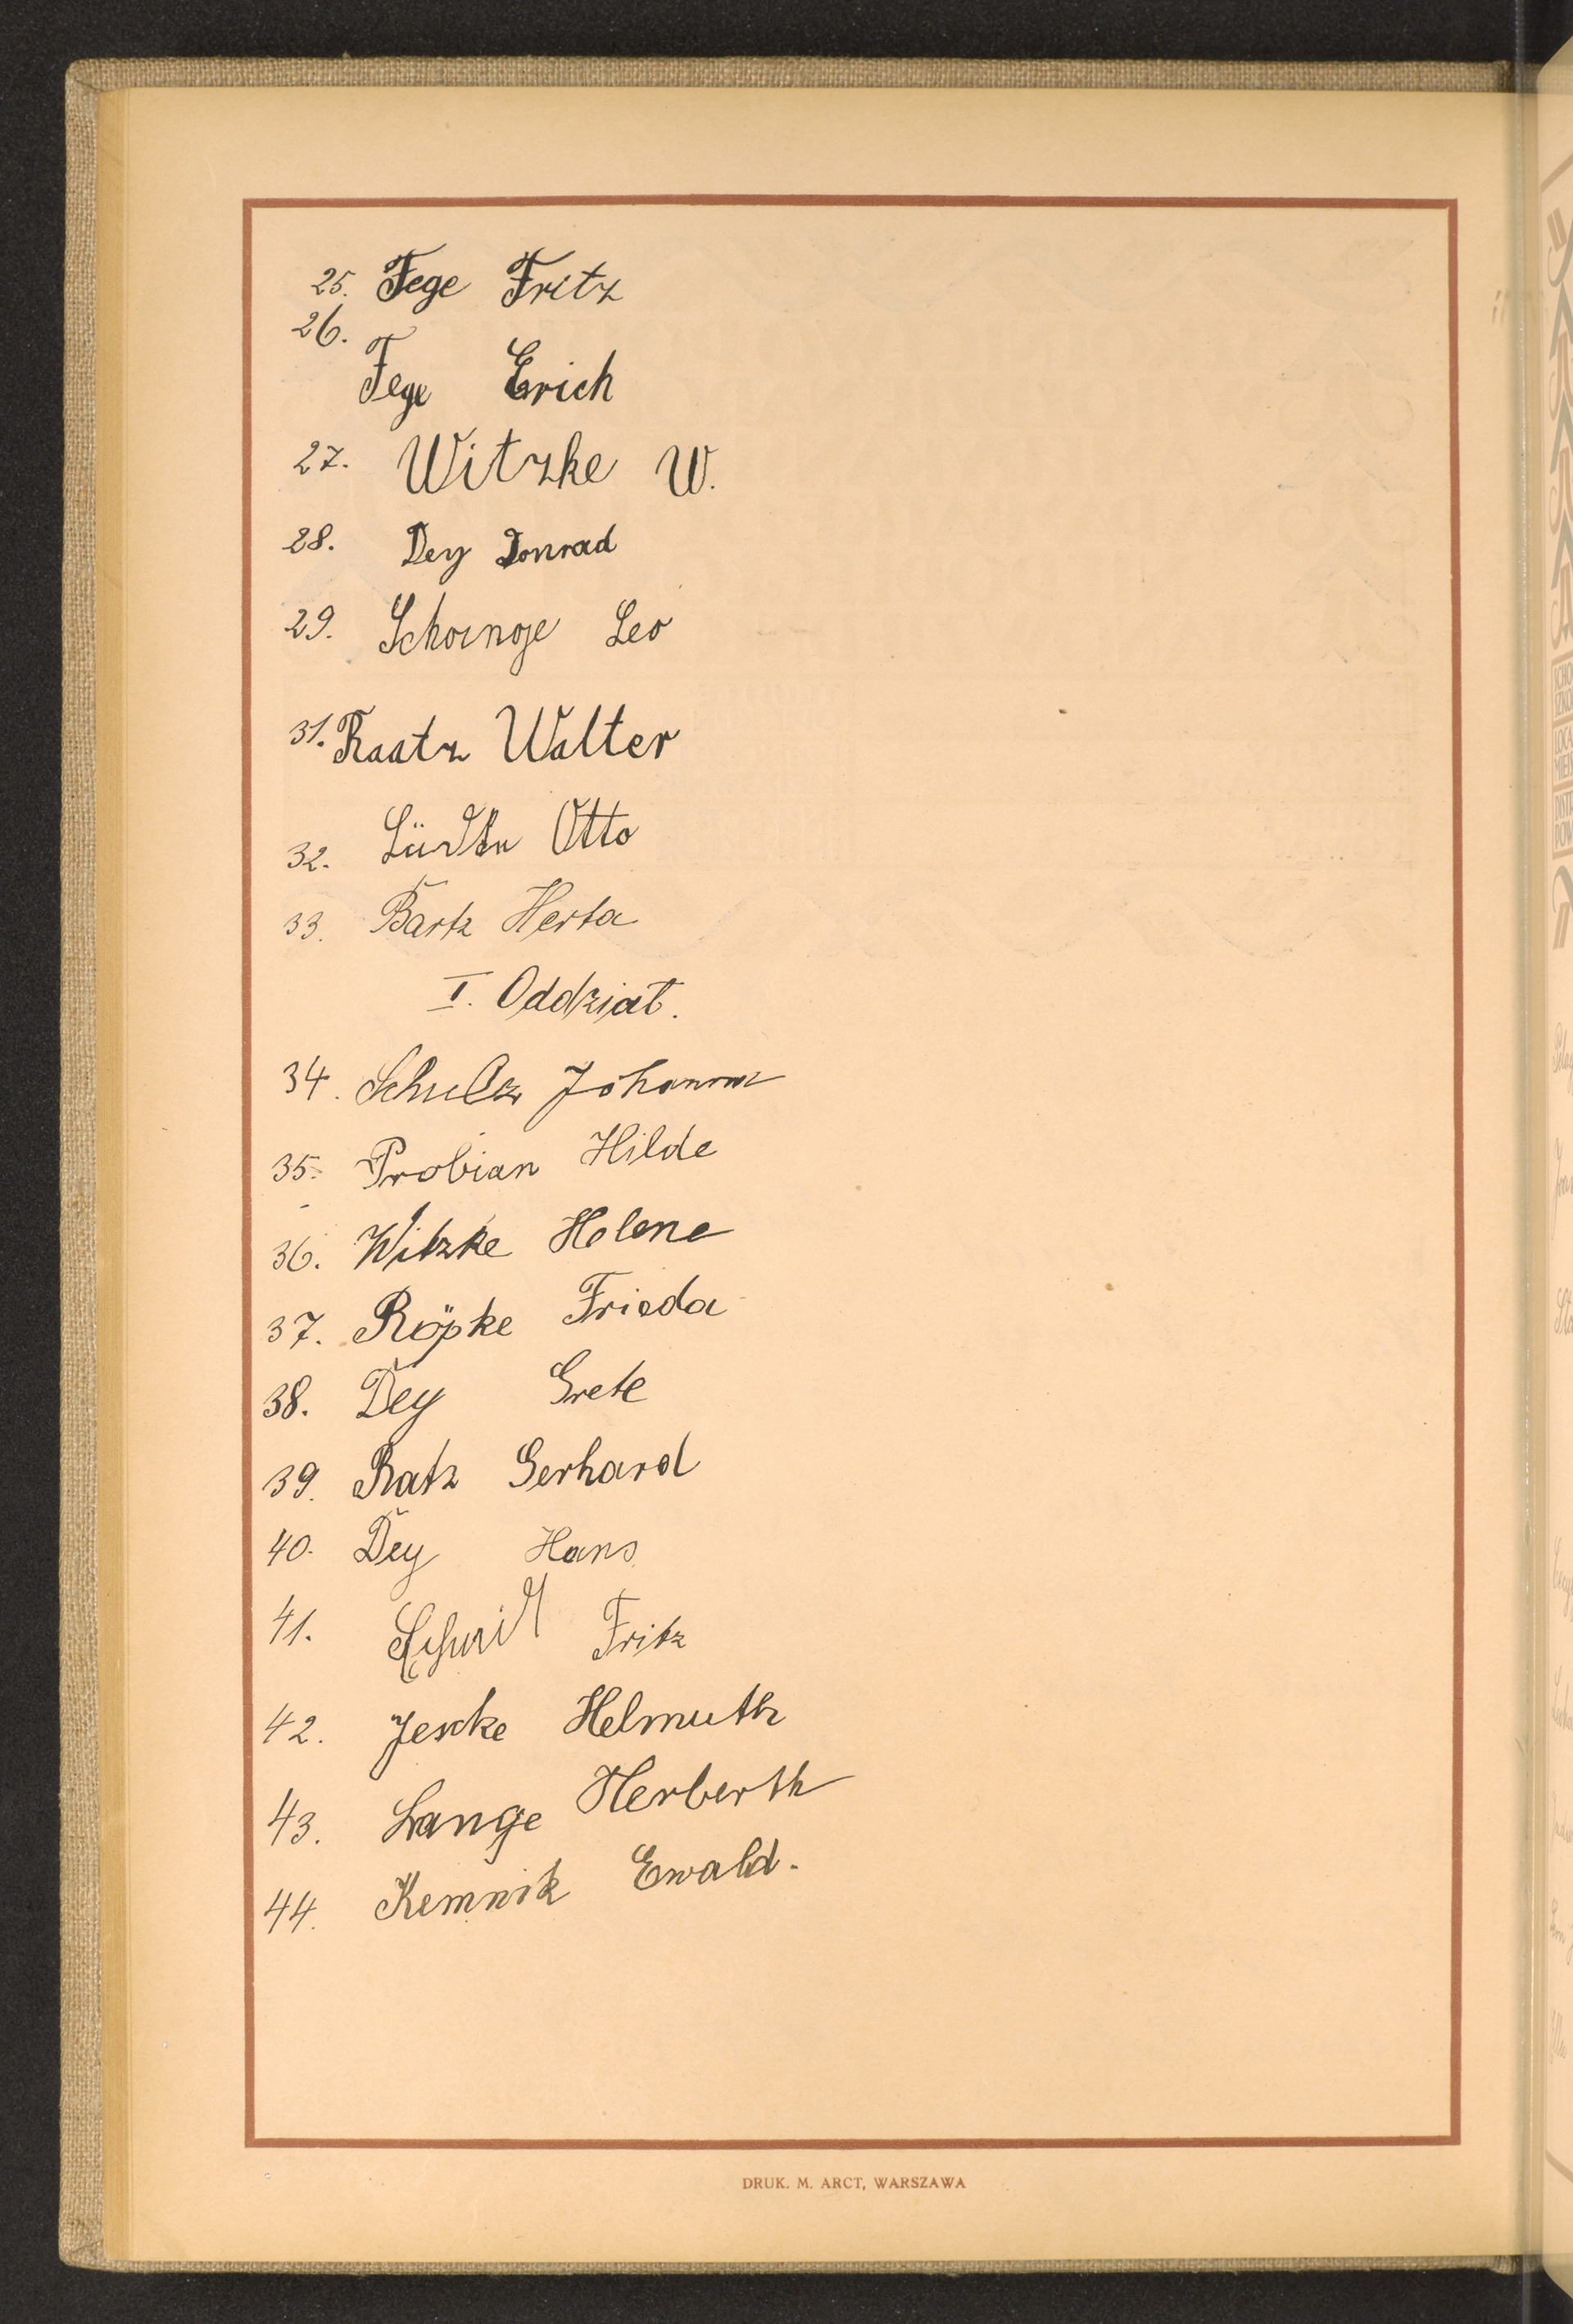 25. Fege Fritz
26.
Fege Erich
27. Witzke W.
28. Dey Konrad
29. Leo
31. Raatz Walter
32. Lüdtke Otto
33. Bartz Herta
I. Oddział.
34. Schulz Johanna
35. Probian Hilde
36. Witzke Helene
37. Röpke Frieda
38. Dey Grete
39. Ratz Gerhard
40. Dey Hans
41. Schmidt Fritz
42. Jeschke Helmuth
43. Lange Herberth
44. Kemnik Ewald.
DRUK. M. ARCT, WARSZAWA